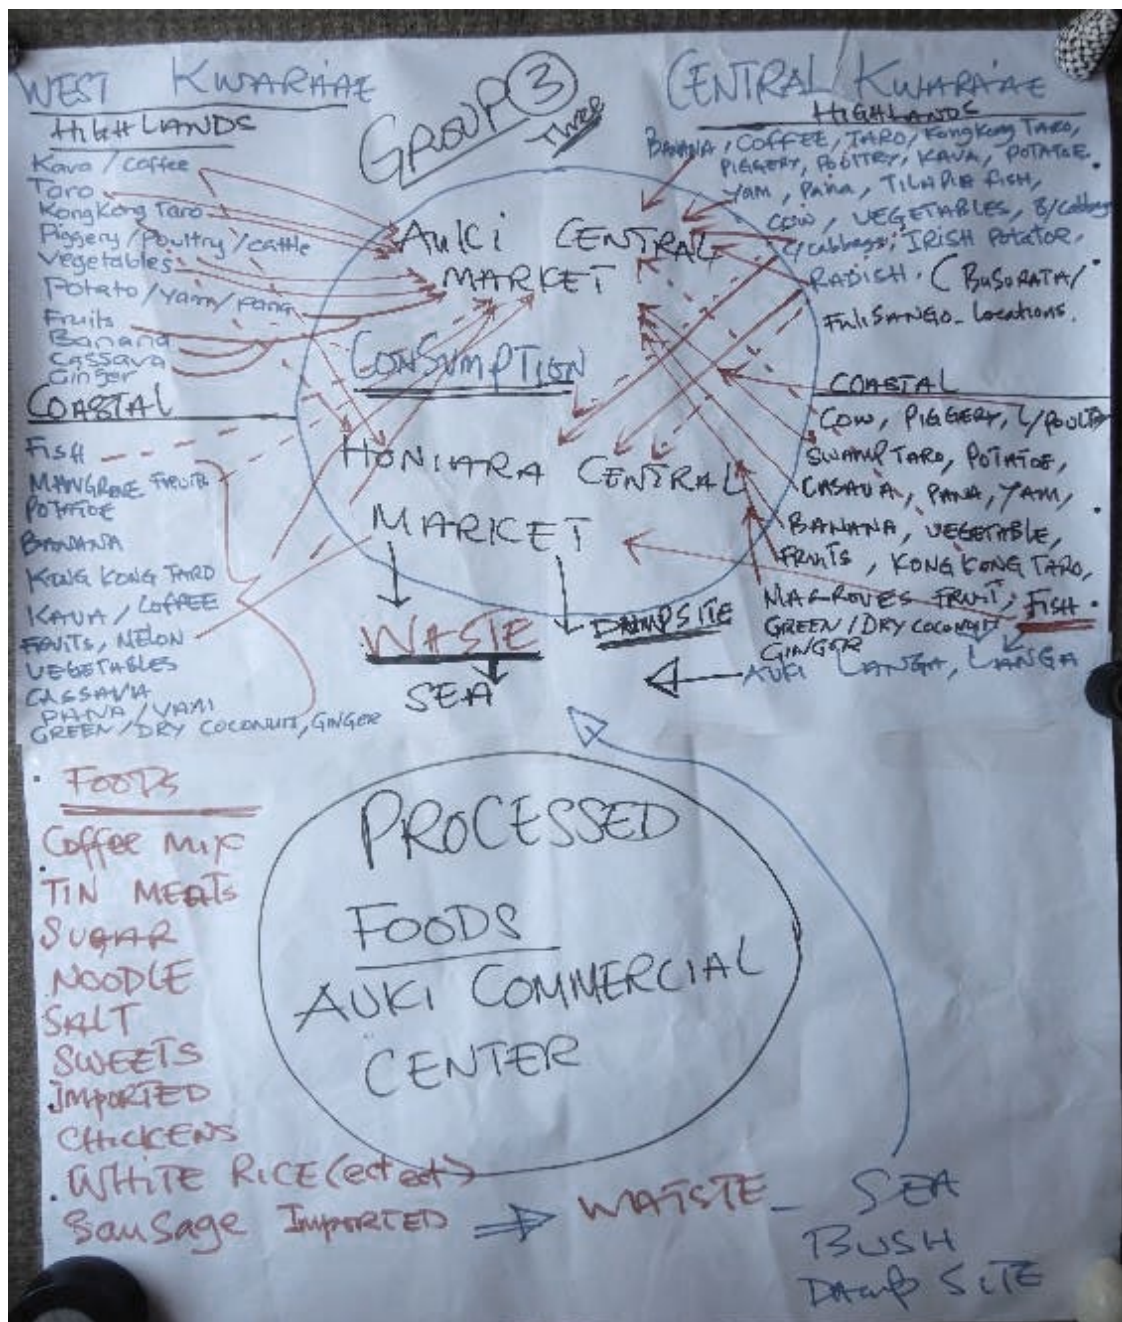 WEST KWARA'AE
HIGHLANDS
Kava / Coffee
Taro
KongKong Taro
Piggery / Poultry / cattle
Vegetables
Potato / yam / pana
Fruits
Banana
Cassava
Ginger
COASTAL
FISH
MANGROVE FRUITS
POTATOE
BANANA
KONG KONG TARO
KAVA / COFFEE
FRUITS, MELON
VEGETABLES
CASSAVA
PANA / YAM
GREEN / DRY COCONUT, GINGER
GROUP 3
Three
AUKI CENTRAL
MARKET
CONSUMPTION
HONIARA CENTRAL
MARKET
WASTE
DAMPSITE
SEA
CENTRAL KWARA'AE
HIGHLANDS
BANANA, COFFEE, TARO / KongKong TARO,
PIGGERY, POULTRY, KAVA, POTATOE
YAM, PANA, TILAPIA FISH,
COW, VEGETABLES, B/Cabbage
C/Cabbage, IRISH Potatoe,
RADISH. (BUSURATA/
FULISANGO - Locations.
COASTAL
COW, PIGGERY, L/POULTRY
SWAMP TARO, POTATOE,
CASAVA, PANA, YAM,
BANANA, VEGETABLE,
FRUITS, KONG KONG TARO,
MAGROVES FRUIT, FISH
GREEN / DRY COCONUT
GINGER
AUKI LANGA, LANGA
FOODS
Coffee MIX
TIN MEATS
SUGAR
NOODLE
SALT
SWEETS
IMPORTED
CHICKENS
WHITE RICE (ect ect)
Sausage IMPORTED
PROCESSED
FOODS
AUKI COMMERCIAL
CENTER
WAISTE - SEA
BUSH
DAMP SITE